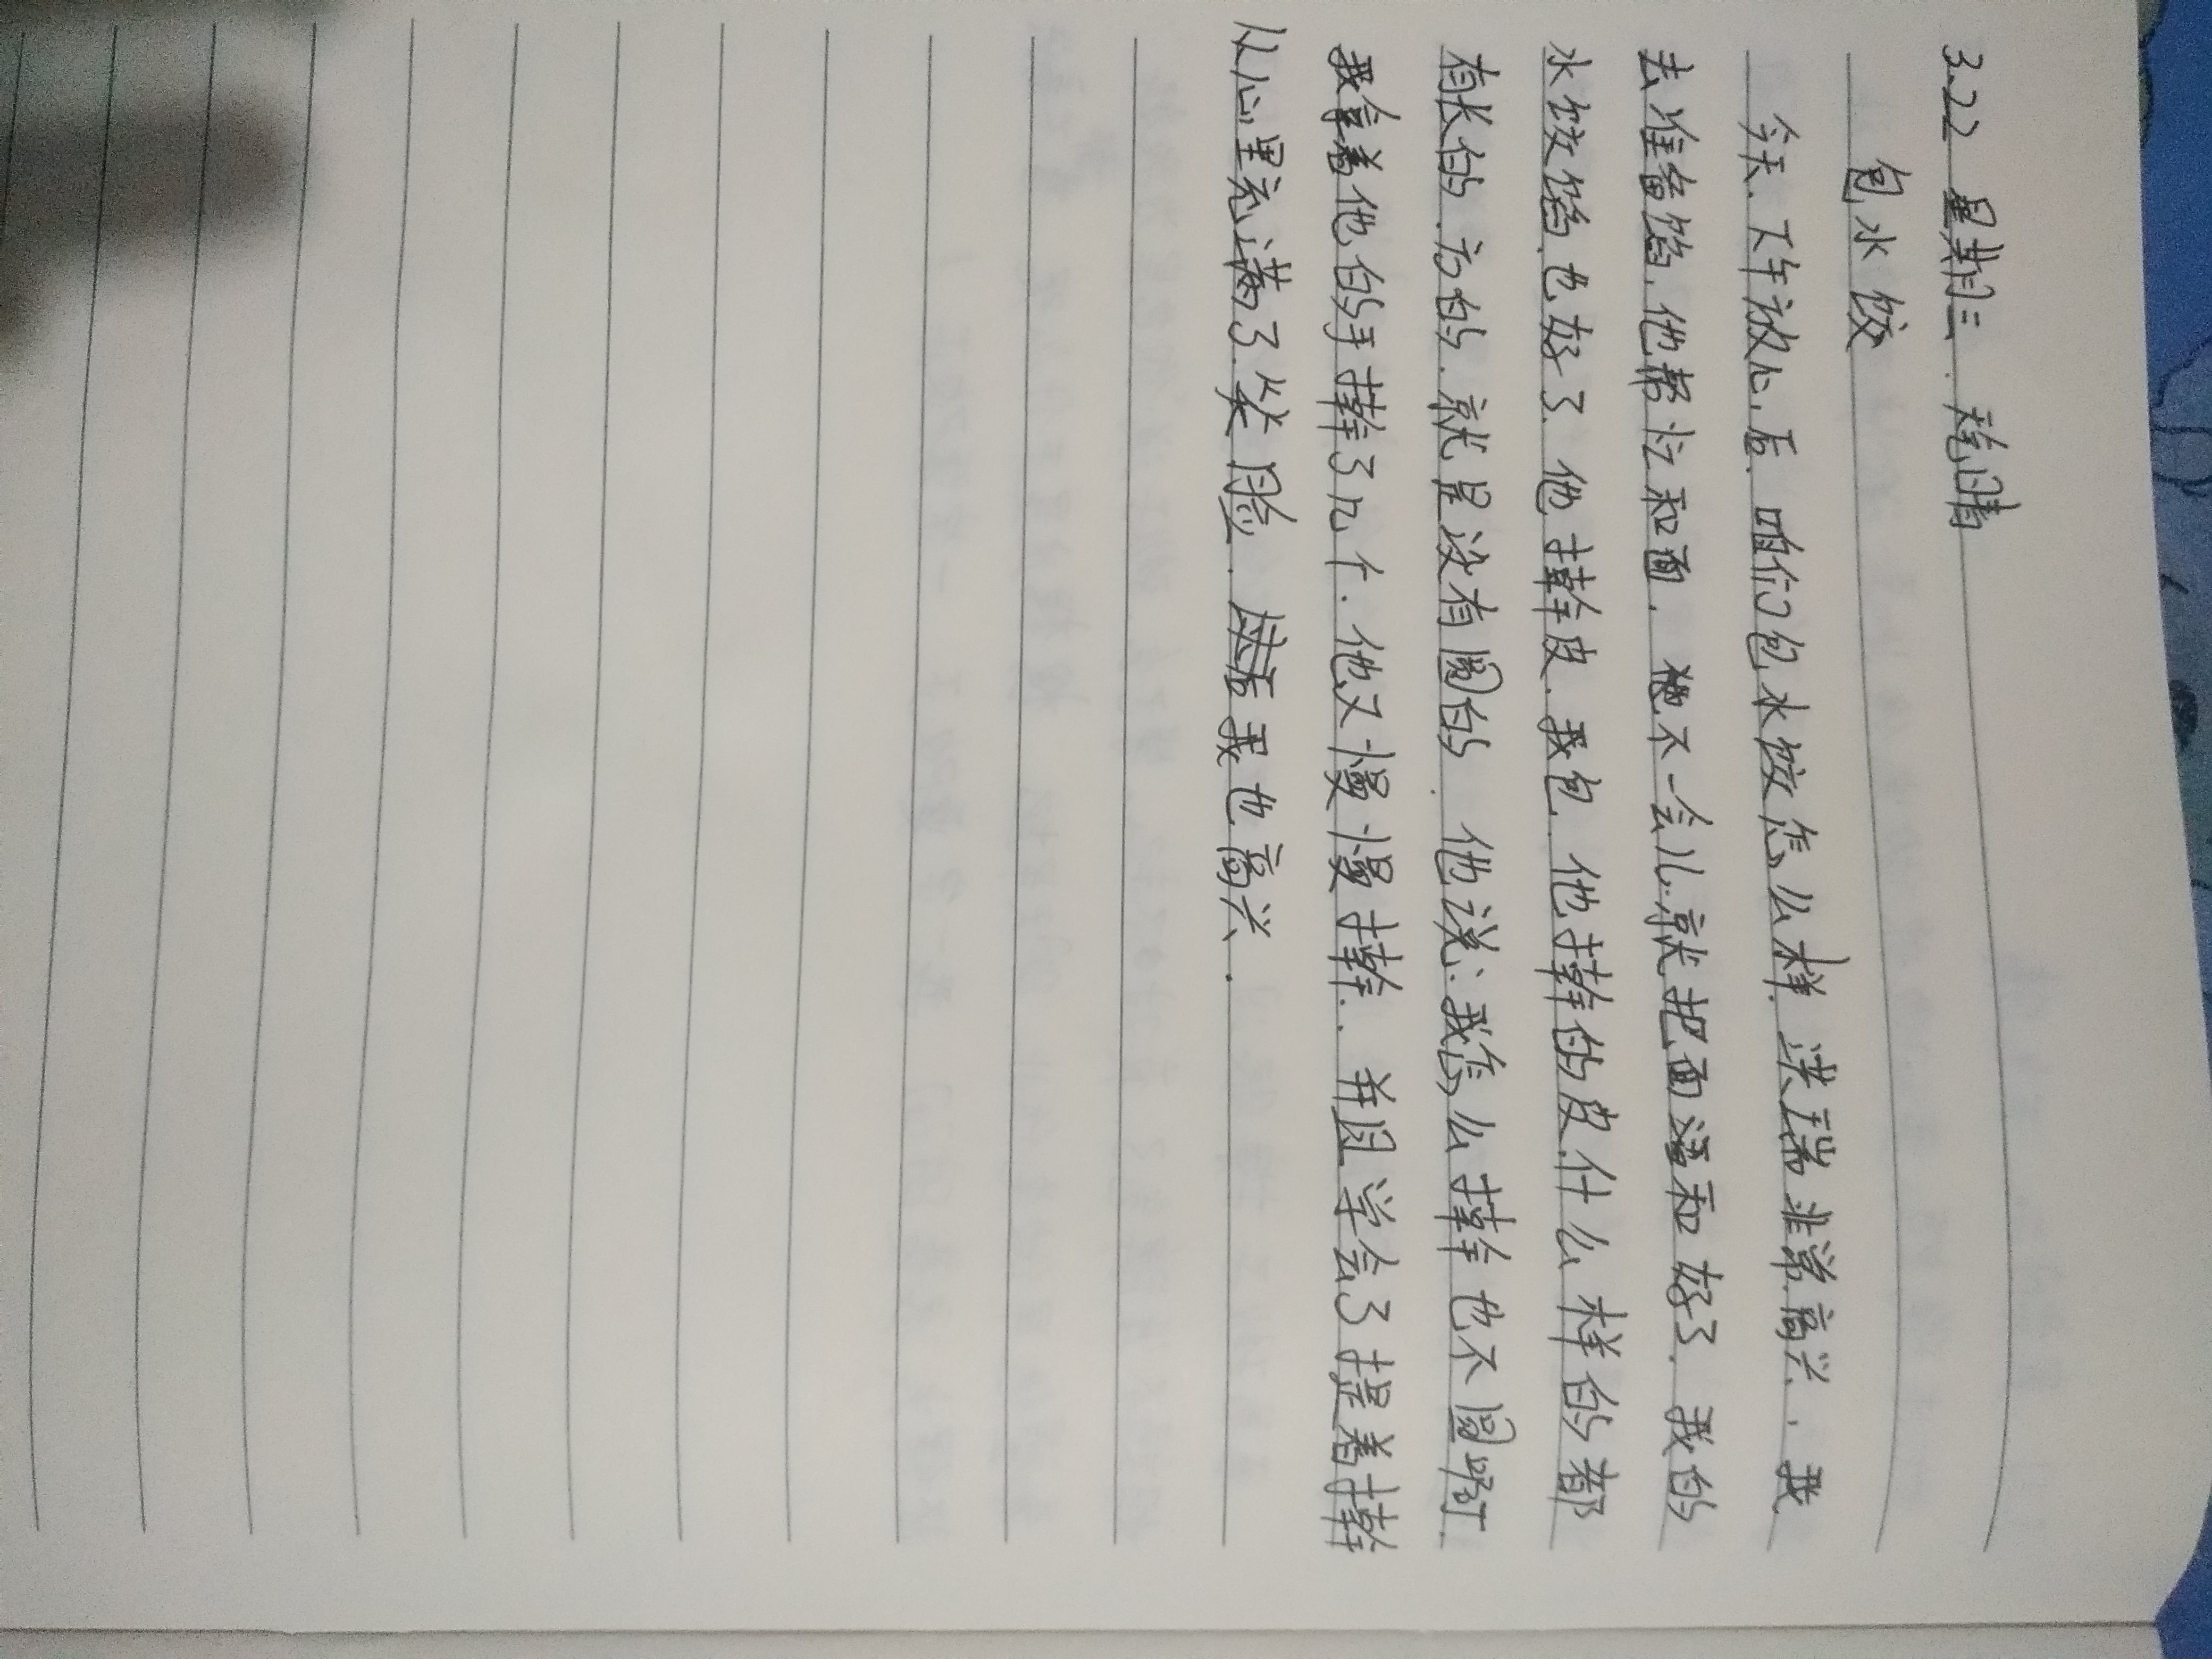 3.22 星期三. 趁晴
包水饺
今天.下午放心后.咱们包水饺怎么样.洪瑞非常高兴.我
去准备馅.他帮忙和面.他不一会儿就把面和好了.我的
水饺馅也好了.他擀皮.我包.他擀的皮什么样的都
有长的.方的.就是没有圆的.他说:我怎么擀也不圆啊.
我拿着他的手擀了几个.他又慢慢擀.并且学会了提着擀
从心里充满了笑脸.然后我也高兴.